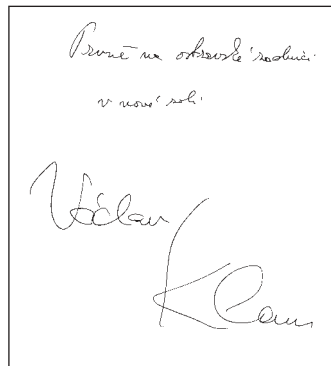 Prvně na ostravské radnici
v nové roli
Václav
Klaus